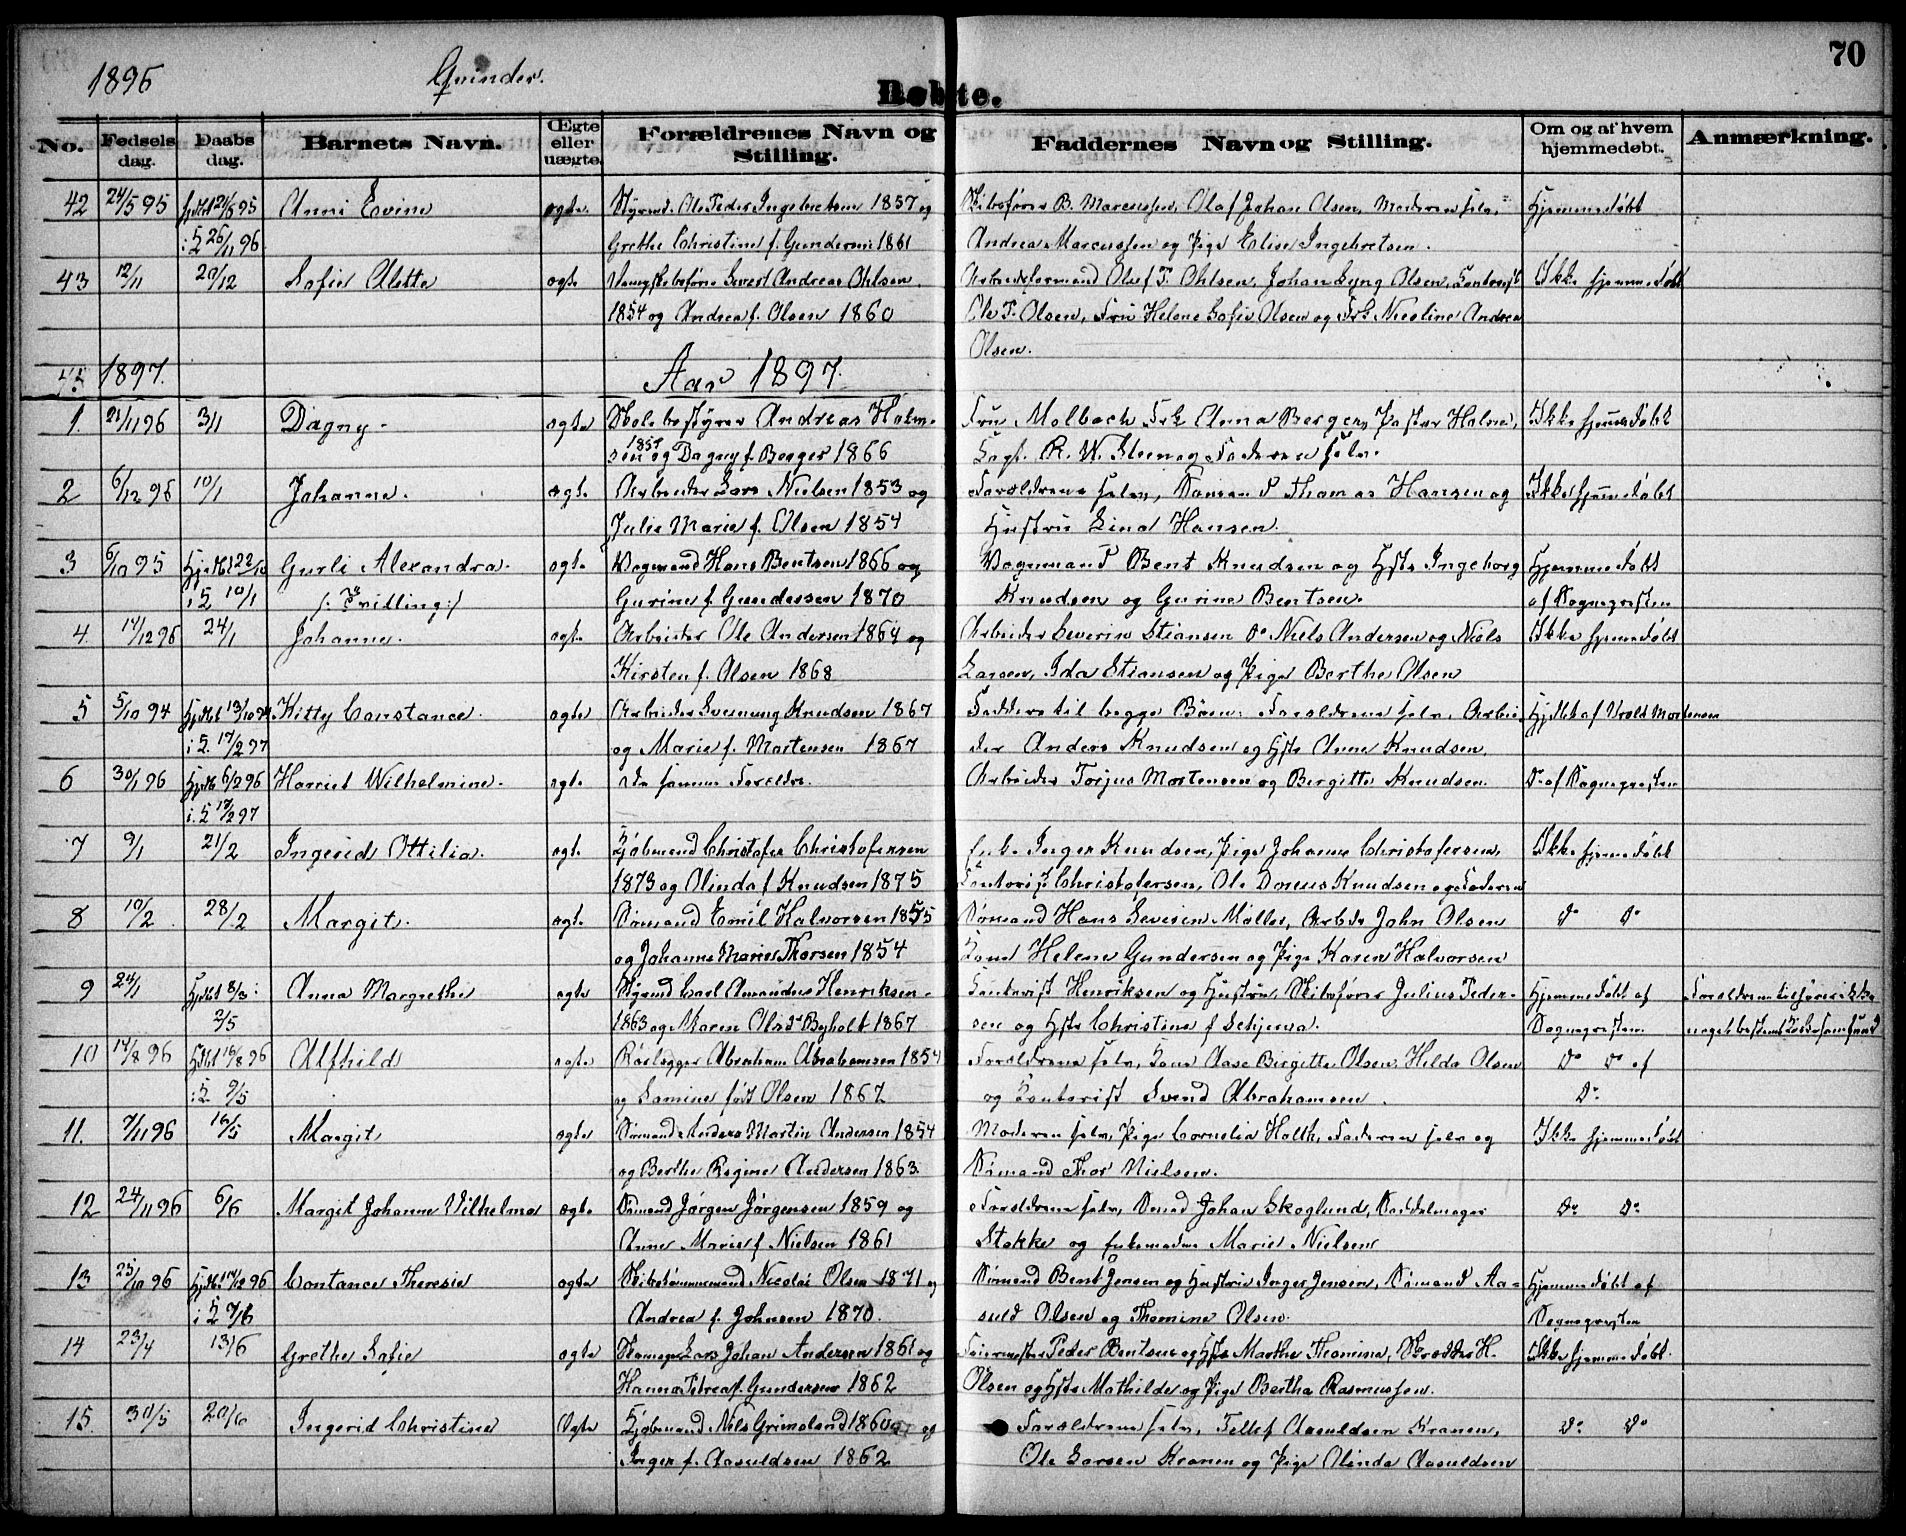 70
1896 Qvinder.
Døbte.
No. Fødsels dag. Daabs dag. Barnets Navn. Ægte eller uægte. Forældrenes Navn og Stilling. Faddernes Navn og Stilling. Om og af hvem hjemmedøbt. Anmærkning.
42 24/5 95 Anni Evine ægte. Styrmd. Ole Peder Ingebretsen 1857 og Skibsfører B. Marcussen, Olaf Johan Olsen, Moderen selv, Hjemmedøbt
i K 26/11 96. Grethe Christine f. Gundersen 1861 Andrea Marcussen og Pige Elise Ingebretsen.
43 12/11 20/12 Sofie Alette ægte Dampskibsfører Severt Andreas Ohlsen Arbeidsformand Olaf T. Ohlsen, Johan Lyng Olsen, Kontorist Ikke hjemmedøbt
1854 og Andrea f. Olsen 1860 Ole T. Olsen, Fru Helene Sofie Olsen og Frk Nicoline Andrea
Olsen.
1897. Aar 1897.
1. 21/11 96 3/1 Dagny ægte Skolebestyrer Andreas Holm- Fru Molbach Frk Anna Berger, Pastor Holm, Ikke hjemmedøbt
1857
sen og Dagny f. Berger 1866 Kapt. R. W. Steen og Faderen selv.
2 6/12 96 10/1 Johanne. ægte Arbeider Lars Nielsen 1853 og Forældrene selv, Sømand Thomas Hansen og Ikke hjemmedøbt
Julie Marie f. Olsen 1854 Hustru Lina Hansen.
3 6/10 95 Gurli Alexandra. ægte Vognmand Hans Bentsen 1866 og Vognmand Bent Knudsen og Hstr Ingeborg Hjemmedøbt
i K 10/1 /: Trilling :/ Gurine f. Gundersen 1870 Knudsen og Gurine Bentsen. af Sognepresten
4. 17/12 96 24/1 Johanne. ægte Arbeider Ole Andersen 1864 og Arbeider Severin Stiansen Do Niels Andersen og Niels Ikke hjemmedøbt
Kirsten f. Olsen 1868 Larsen, Ida Stiansen og Pige Berthe Olsen
5 5/10 94 Kitty Constance. ægte Arbeider Svenung Knudsen 1867 Faddere til begge Børn: Forældrene selv, Arbei- Hjdøbt af Mortensen
i K 17/2 97 og Marie f. Mortensen 1867 der Anders Knudsen og Hstr Anne Knudsen,
6 30/1 96 Hjdøbt 6/2 96 Harriet Wilhelmine. ægte de samme Forældre. Arbeider Torjus Mortensen og Bergitte Knudsen. Do af Sognepresten
i K 17/2 97
7 9/1 21/2 Ingerid Ottilia. ægte Kjøbmand Christofer Christofersen Enke Inger Knudsen, Pige Johanne Christofersen, Ikke hjemmedøbt
1873 og Olinda f Knudsen 1875 Kontorist Christofersen, Ole Doreus Knudsen og Faderen
8 10/2 28/2 Margit. ægte Sømand Emil Halvorsen 1855 Sømand Hans Severin Møller, Arbdr John Olsen Do Do
og Johanne Marie Thorsen 1854 Kone Helene Gundersen og Pige Karen Halvorsen
9 24/1 Hjdøbt 8/3 Anna Margrethe ægte Styrmd Carl Amandus Henriksen Kontorist Henriksen og Hustru, Skibsfører Julius Peder- Hjemmedøbt af Forældrene tilhører ikke
2/5 1863 og Karen Byholt 1867 sen og Hstr Christine f Schjerva. Sognepresten noget bestemt Kirkesamfund
10 14/8 96 Hjdøbt 16/8 96 Alfhild ægte Rørlægger Abraham Abrahamsen 1854 Forældrene selv, Kone Aase Birgitte Olsen, Hilda Olsen Do Do af
i K 9/5 og Lamine født Olsen 1862 og Kontorist Svend Abrahamsen. Do
11. 7/11 96 16/5 Margit ægte Sømand Anders Martin Andersen 1854 Moderen selv, Pige Cornelia Holth, Faderen selv og Ikke hjemmedøbt
og Berthe Regine Andersen 1863. Sømand Thor Nielsen.
12 24/11 96 6/6 Margit Johanne Wilhelma ægte Sømand Jørgen Jørgensen 1859 og Forældrene selv, Sømd Johan Skoglund, Sadelmager Do Do
Anne Marie f Nielsen 1861 Stokke og Enkemadam Marie Nielsen
13 25/10 96 Contance Theresie ægte Skibstømmermand Nicolai Olsen 1871 og Sømand Bent Jensen og Hustru Inger Jensen, Sømand Aa- Hjemmedøbt af
i K 7/6 Andrea f. Johnsen 1870. suld Olsen og Thomine Olsen. Sognepresten
14 23/4 13/6 Grethe Sofie ægte Lars Johan Andersen 1861 og Feiermester Peder Bentsen og Hstr Marthe Thomine, Skrædder H. Ikke hjemmedøbt.
Hanna Petrea f. Gundersen 1862 Olsen og Hstr Mathilde og Pige Bertha Rasmussen.
15. 30/5 20/6 Ingerid Christine Ægte Kjøbmand Nils Grimsland 1860 og Forældrene selv, Tellef Aasuldsen Kranen, Do Do
Inger f. Aasuldsen 1862 Ole Larsen Kranen og Pige Olinda Aasuldsen